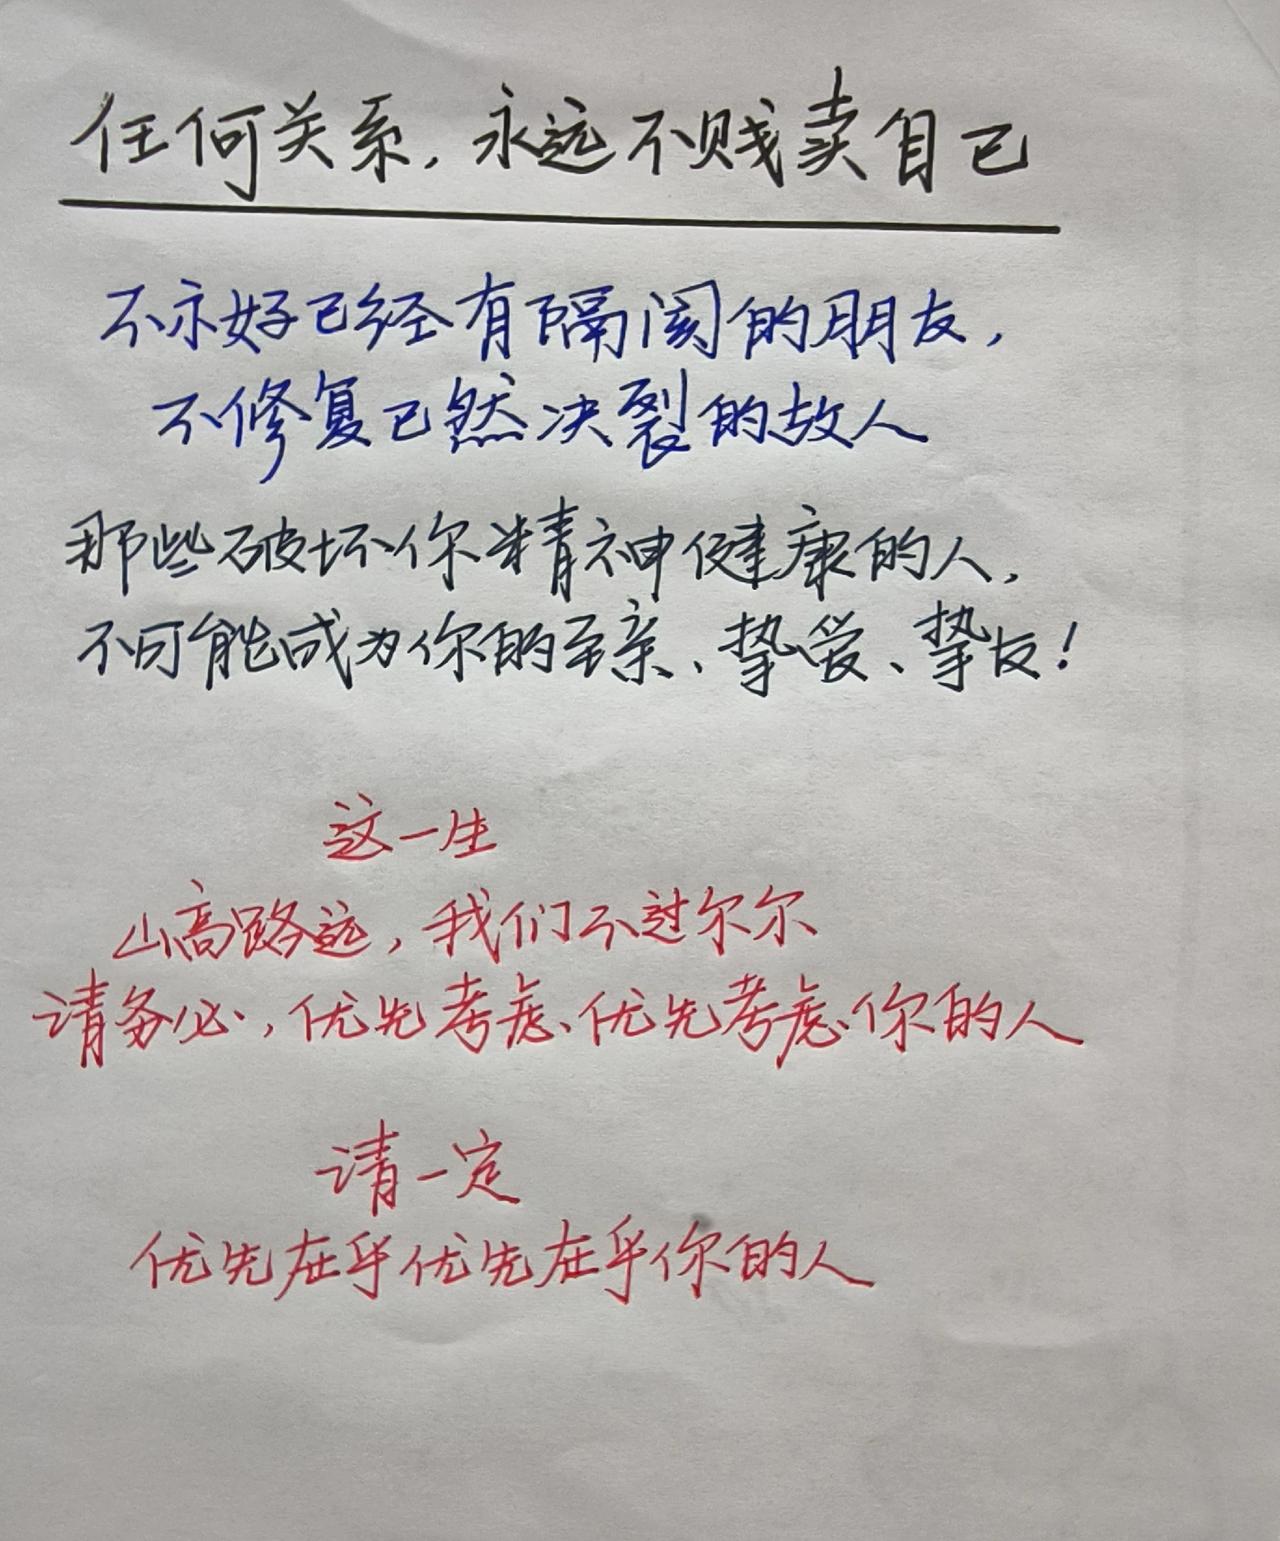 任何关系,永远不贱卖自己
不示好已经有隔阂的朋友,
不修复已然决裂的故人
那些破坏你精神健康的人,
不可能成为你的至亲、挚爱、挚友!
这一生
山高路远,我们不过尔尔
请务必,优先考虑、优先考虑你的人
请一定
优先在乎优先在乎你的人